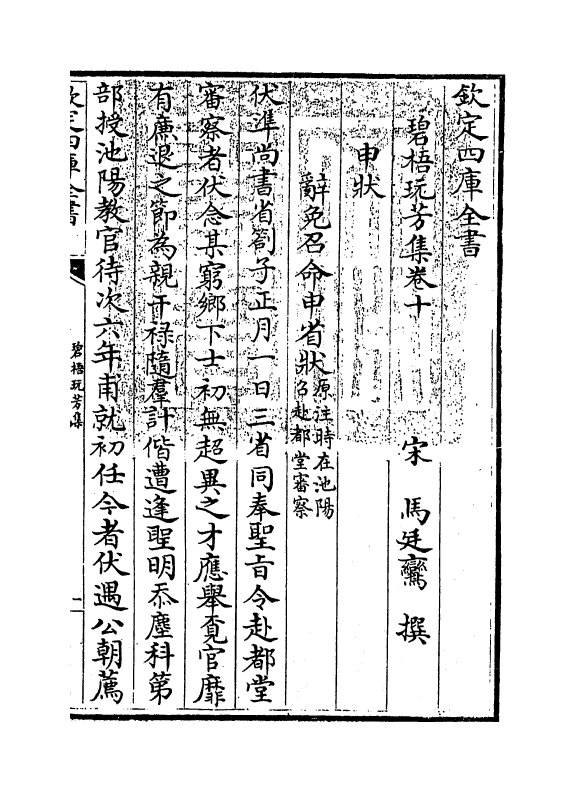 欽定四庫全書
碧梧玩芳集卷十
宋 馬廷鸞 撰
申狀
辭免召命申省狀原注時在池陽召赴都堂審察
伏準尚書省劄子正月一日三省同奉聖旨令赴都堂
審察者伏念某窮鄉下士初無超異之才應舉覔官靡
有亷退之節為親干禄隨羣計偕遭逢聖明忝塵科第
部授池陽教官待次六年甫就初任今者伏遇公朝薦
欽定四庫全書
碧梧玩芳集
二